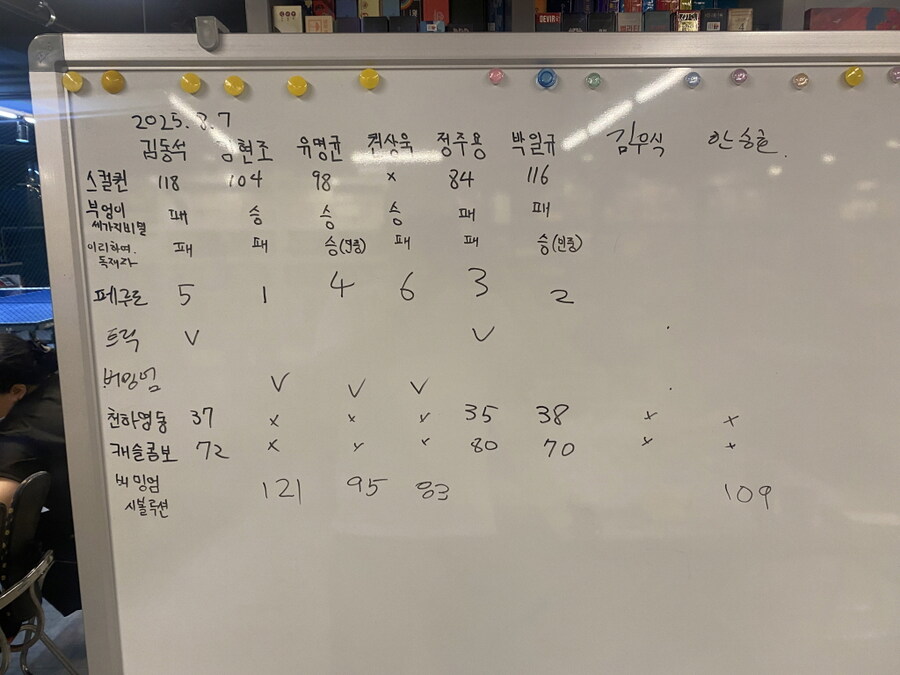 DEVIR
2025. 3.7
김동석 김현조 유명균 전상욱 정주용 박일규 김우식 안승훈.
스컬퀸 118 104 98 x 84 116
부엉이 세가지비밀 패 승 승 승 패 패
이리하여. 독재자 패 패 승(민중) 패 패 승(민중)
페구로 5 1 4 6 3 2
트릭 V V
V V V
천하명동 37 x x x 35 38 x x
캐슬콤보 72 x x x 80 70 x x
비밍엄 시볼루션 121 95 83 109